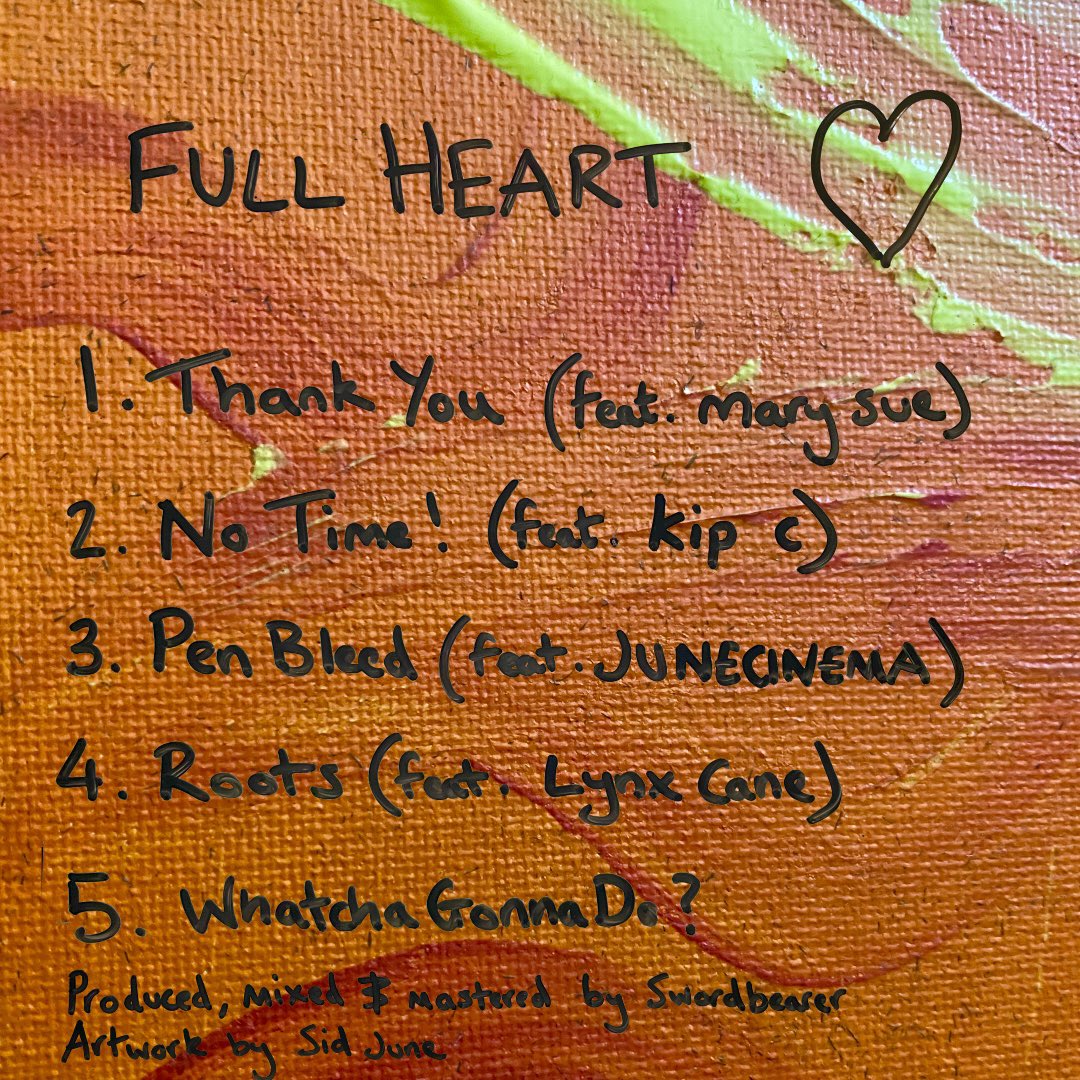 FULL HEART
1. Thank You (feat. mary sue)
2. No Time! (feat. kip c)
3. Pen Bleed (feat. JUNECINEMA)
4. Roots (feat. Lynx Cane)
5. Whatcha Gonna Do?
Produced, mixed & mastered by Swordbearer
Artwork by Sid June